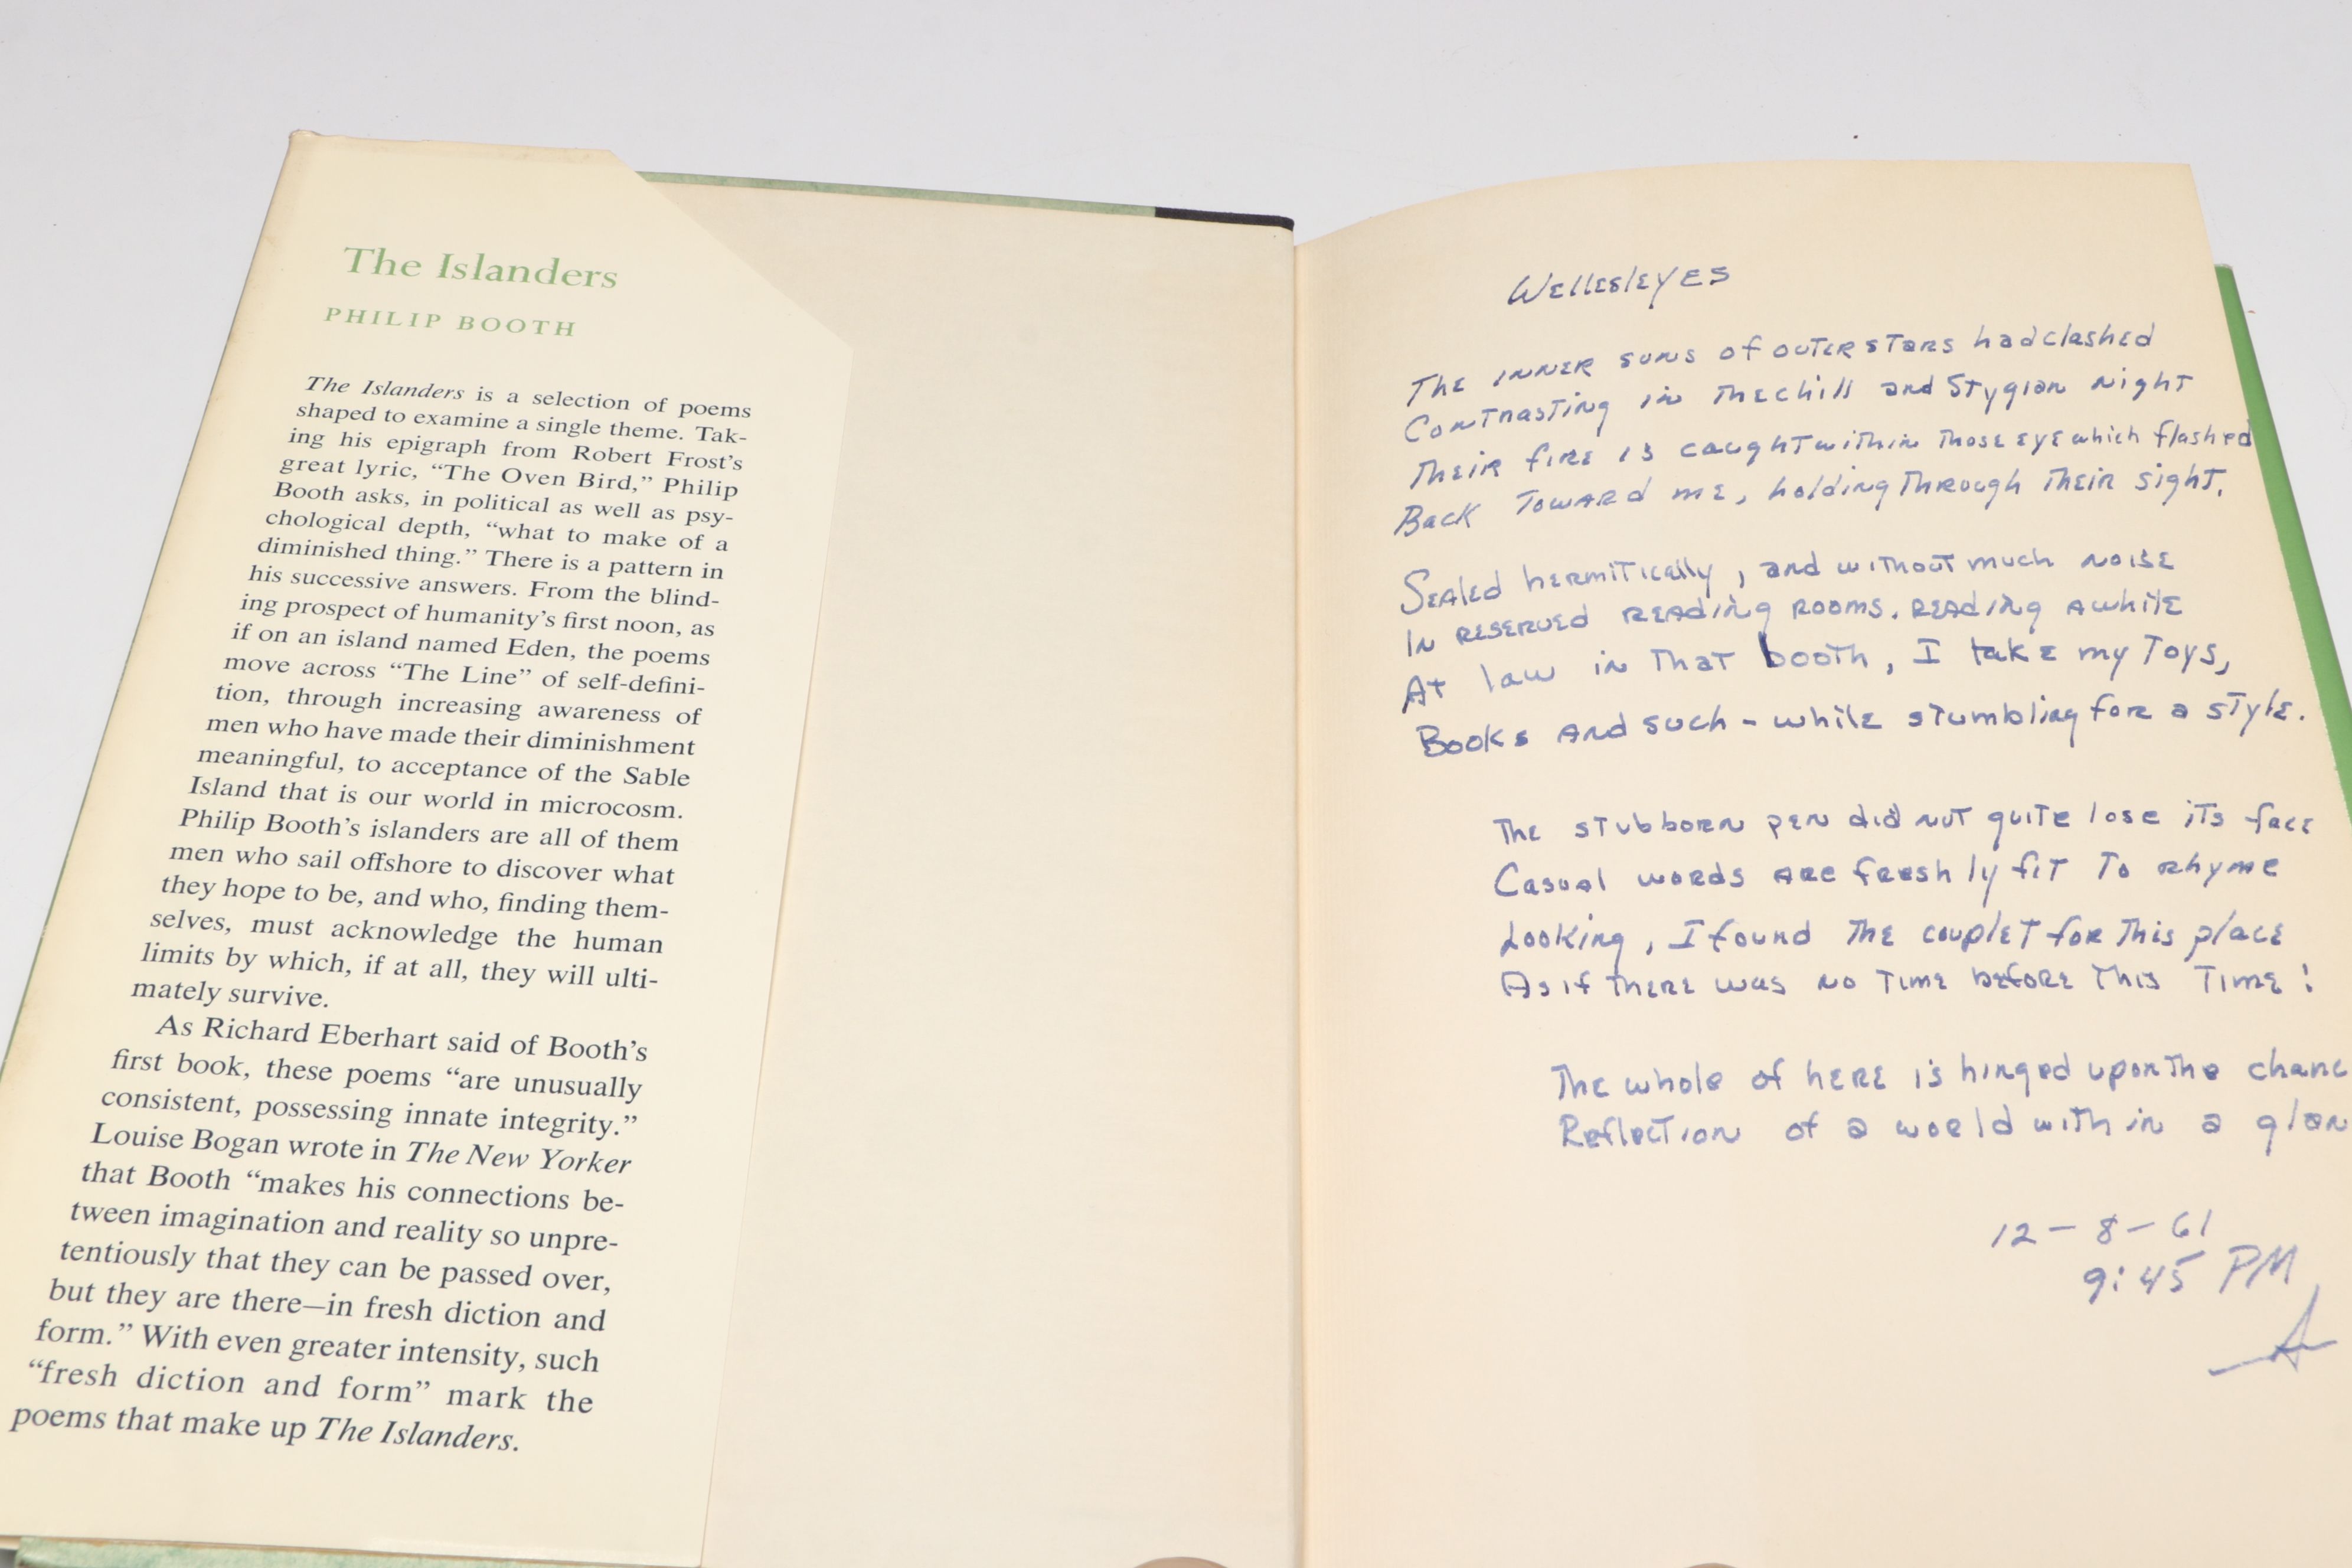 The Islanders
PHILIP BOOTH
The Islanders is a selection of poems
shaped to examine a single theme. Tak-
ing his epigraph from Robert Frost's
great lyric, “The Oven Bird,” Philip
Booth asks, in political as well as psy-
chological depth, “what to make of a
diminished thing.” There is a pattern in
his successive answers. From the blind-
ing prospect of humanity's first noon, as
if on an island named Eden, the poems
move across “The Line” of self-defini-
tion, through increasing awareness of
men who have made their diminishment
meaningful, to acceptance of the Sable
Island that is our world in microcosm.
Philip Booth's islanders are all of them
men who sail offshore to discover what
they hope to be, and who, finding them-
selves, must acknowledge the human
limits by which, if at all, they will ulti-
mately survive.
As Richard Eberhart said of Booth's
first book, these poems “are unusually
consistent, possessing innate integrity.”
Louise Bogan wrote in The New Yorker
that Booth “makes his connections be-
tween imagination and reality so unpre-
tentiously that they can be passed over,
but they are there—in fresh diction and
form.” With even greater intensity, such
“fresh diction and form” mark the
poems that make up The Islanders.
Wellesleyes
The inner suns of outer stars had clashed
Contrasting in the chill and Stygian night
Their fire is caught within those eye which flashed
Back toward me, holding through their sight.
Sealed hermitically, and without much noise
In reserved reading rooms. Reading awhile
At law in that booth, I take my toys,
Books and such - while stumbling for a style.
The stubborn pen did not quite lose its face
Casual words are freshly fit to rhyme
Looking, I found the couplet for this place
As if there was no time before this time!
The whole of here is hinged upon the chanc
Reflection of a world within a glan
12-8-61
9:45 PM
A